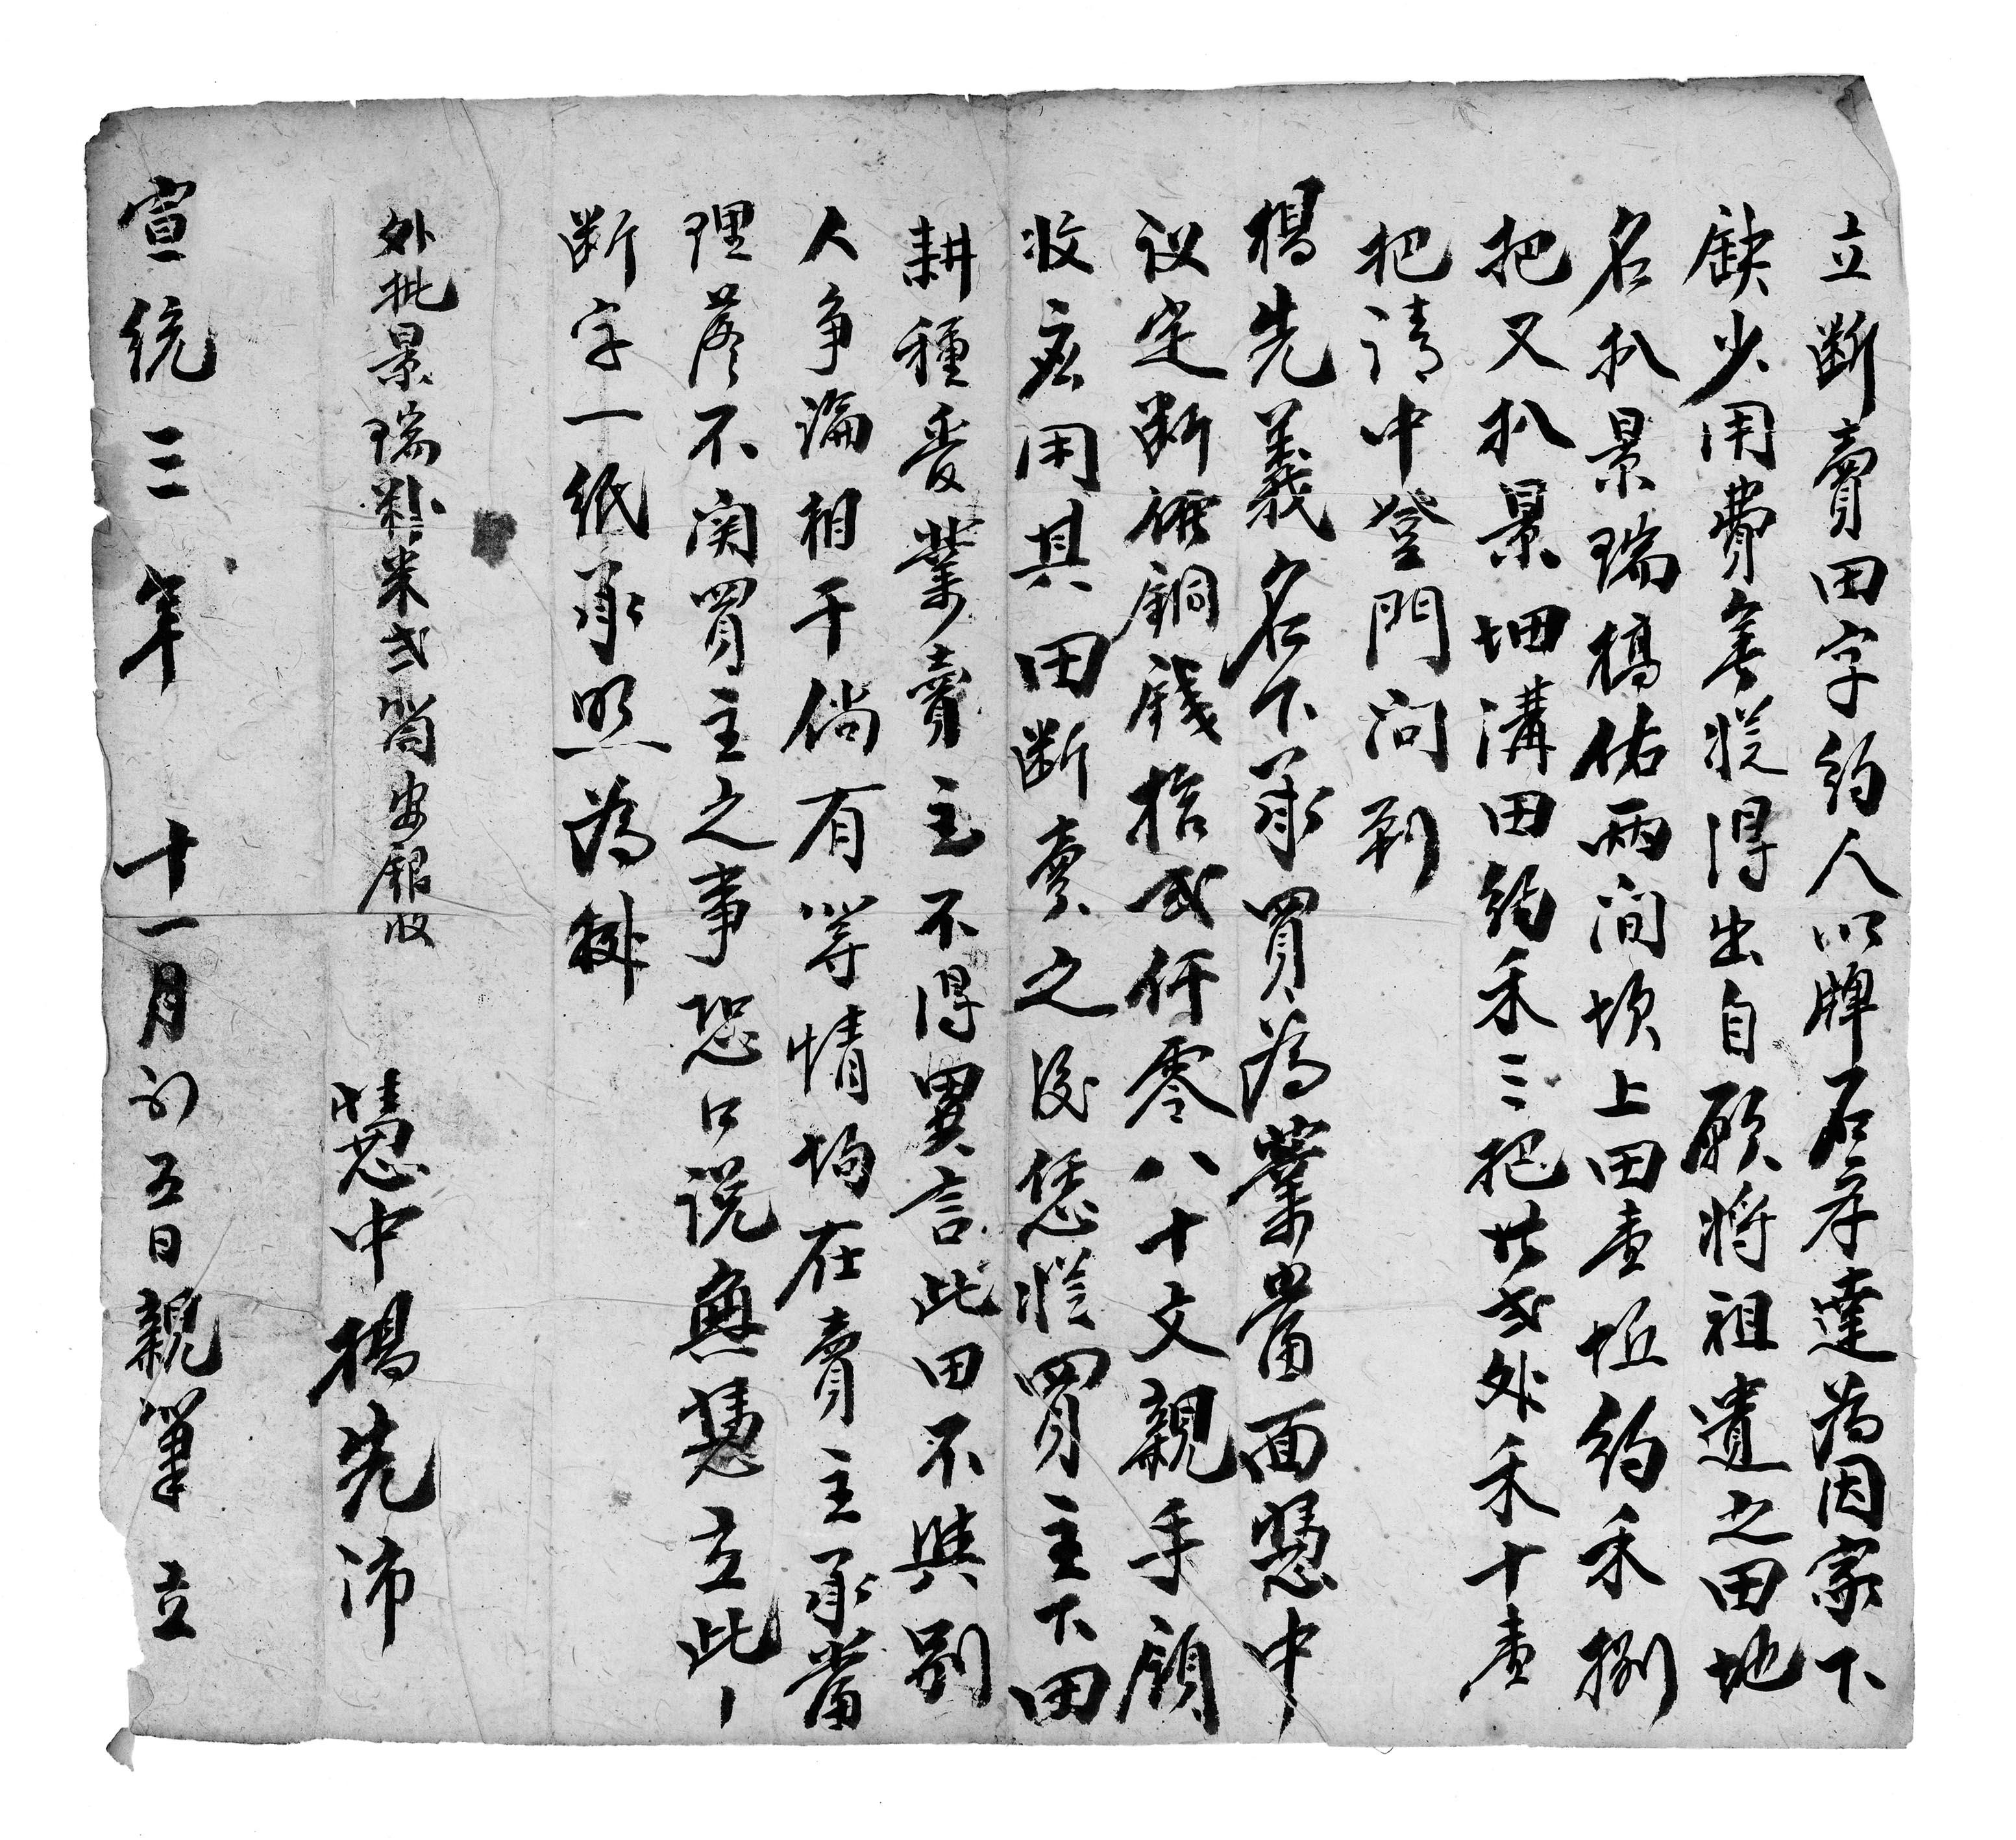 立断賣田字約人以牌石孝達為因家下
缺少用費無從得出自願将祖遺之田地
名扒景瑞橋佑两澗坎上田壹坵約禾捌
把又扒景坤溝田約禾三把廿式外禾十壹
把請中登門问到
楊先義名下承買為業當面憑中
议定断價銅錢拾式仟零八十文親手領
收應用其田断賣之後恁從買主下田
耕種受業賣主不得異言此田不與别
人争論相干倘有等情均在賣主承當
理落不関買主之事恐口说無憑立此
断字一紙承照為據
外批景瑞粮米式簹安銀收
憑中楊先沛
宣統三年 十一月初五日親筆立